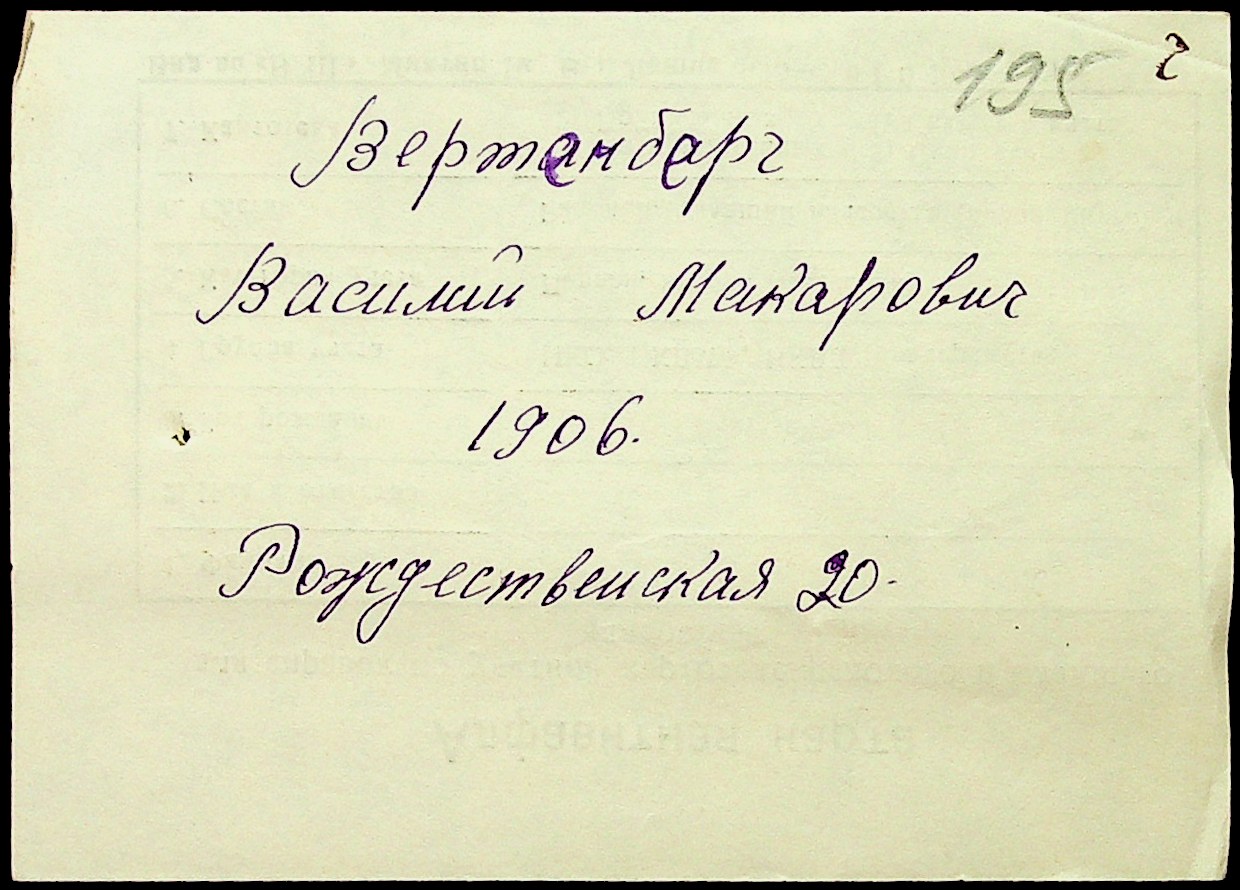 195
Вертенберг
Василий Макарович
1906.
Рождественская 20.